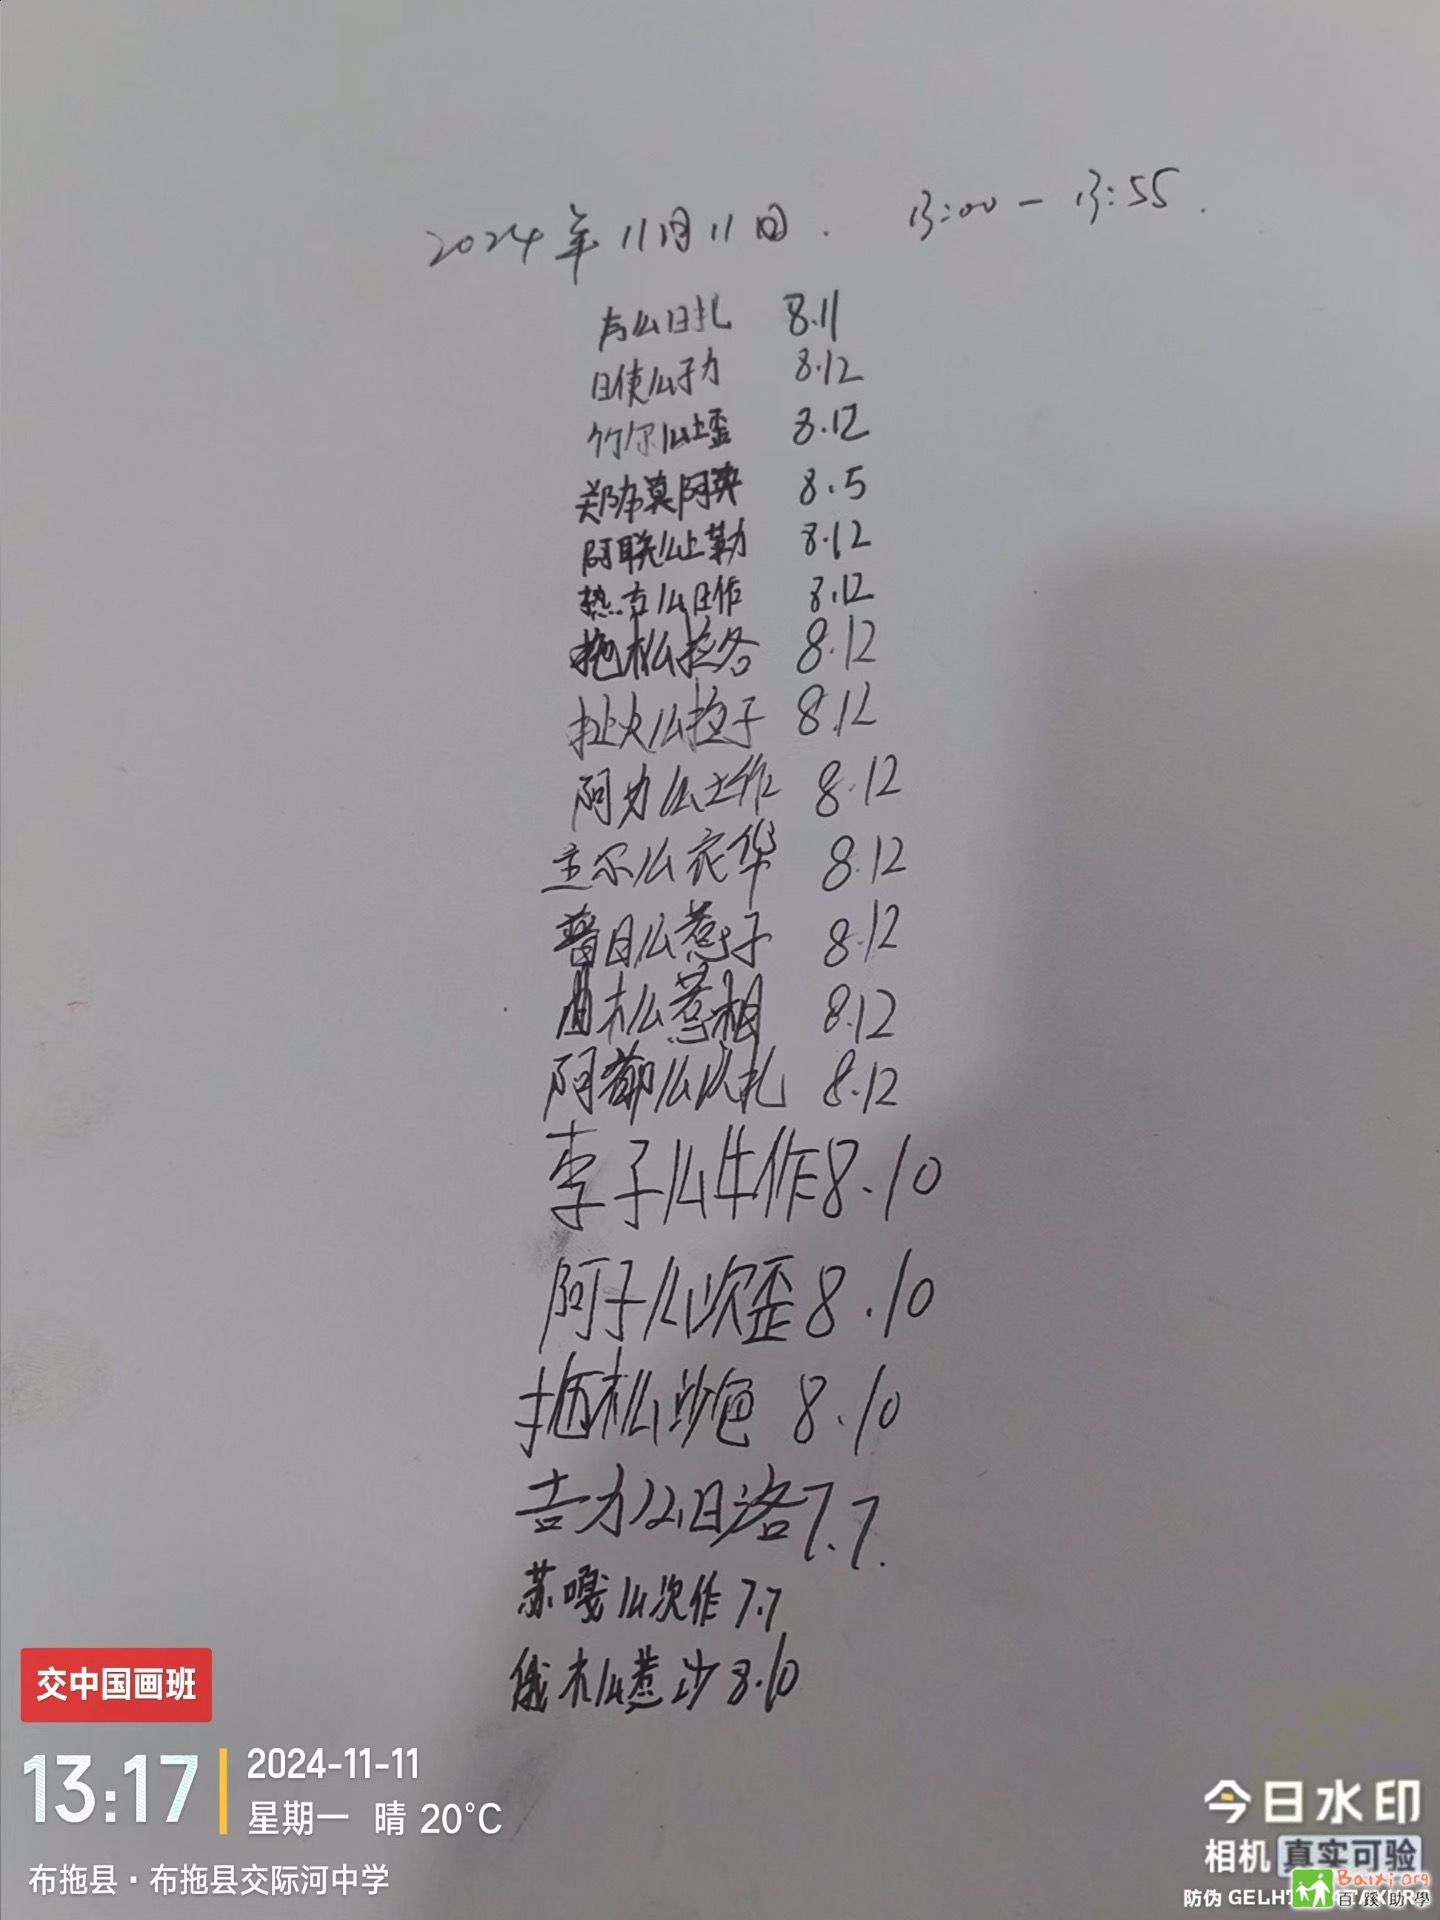 2024年11月11日. 13:00-13:55.
么日扎 8.11
日使么子力 8.12
竹尔么土歪 8.12
郑布莫阿英 8.5
阿联么上勒 8.12
热古么日作 8.12
拖木么拉各 8.12
扯火么拉子 8.12
阿力么土作 8.12
主尔么衣华 8.12
普日么惹子 8.12
曲木么惹相 8.12
阿都么以扎 8.12
李子么牛作 8.10
阿子么次歪 8.10
拖木么沙色 8.10
吉力么日洛 7.7.
苏嘎么次作 7.7
俄木么惹沙 8.10
交中国画班
13:17
2024-11-11
星期一 晴 20°C
布拖县·布拖县交际河中学
今日水印
相机 真实可验
防伪 GELH
Baixi.org
百蹊助學